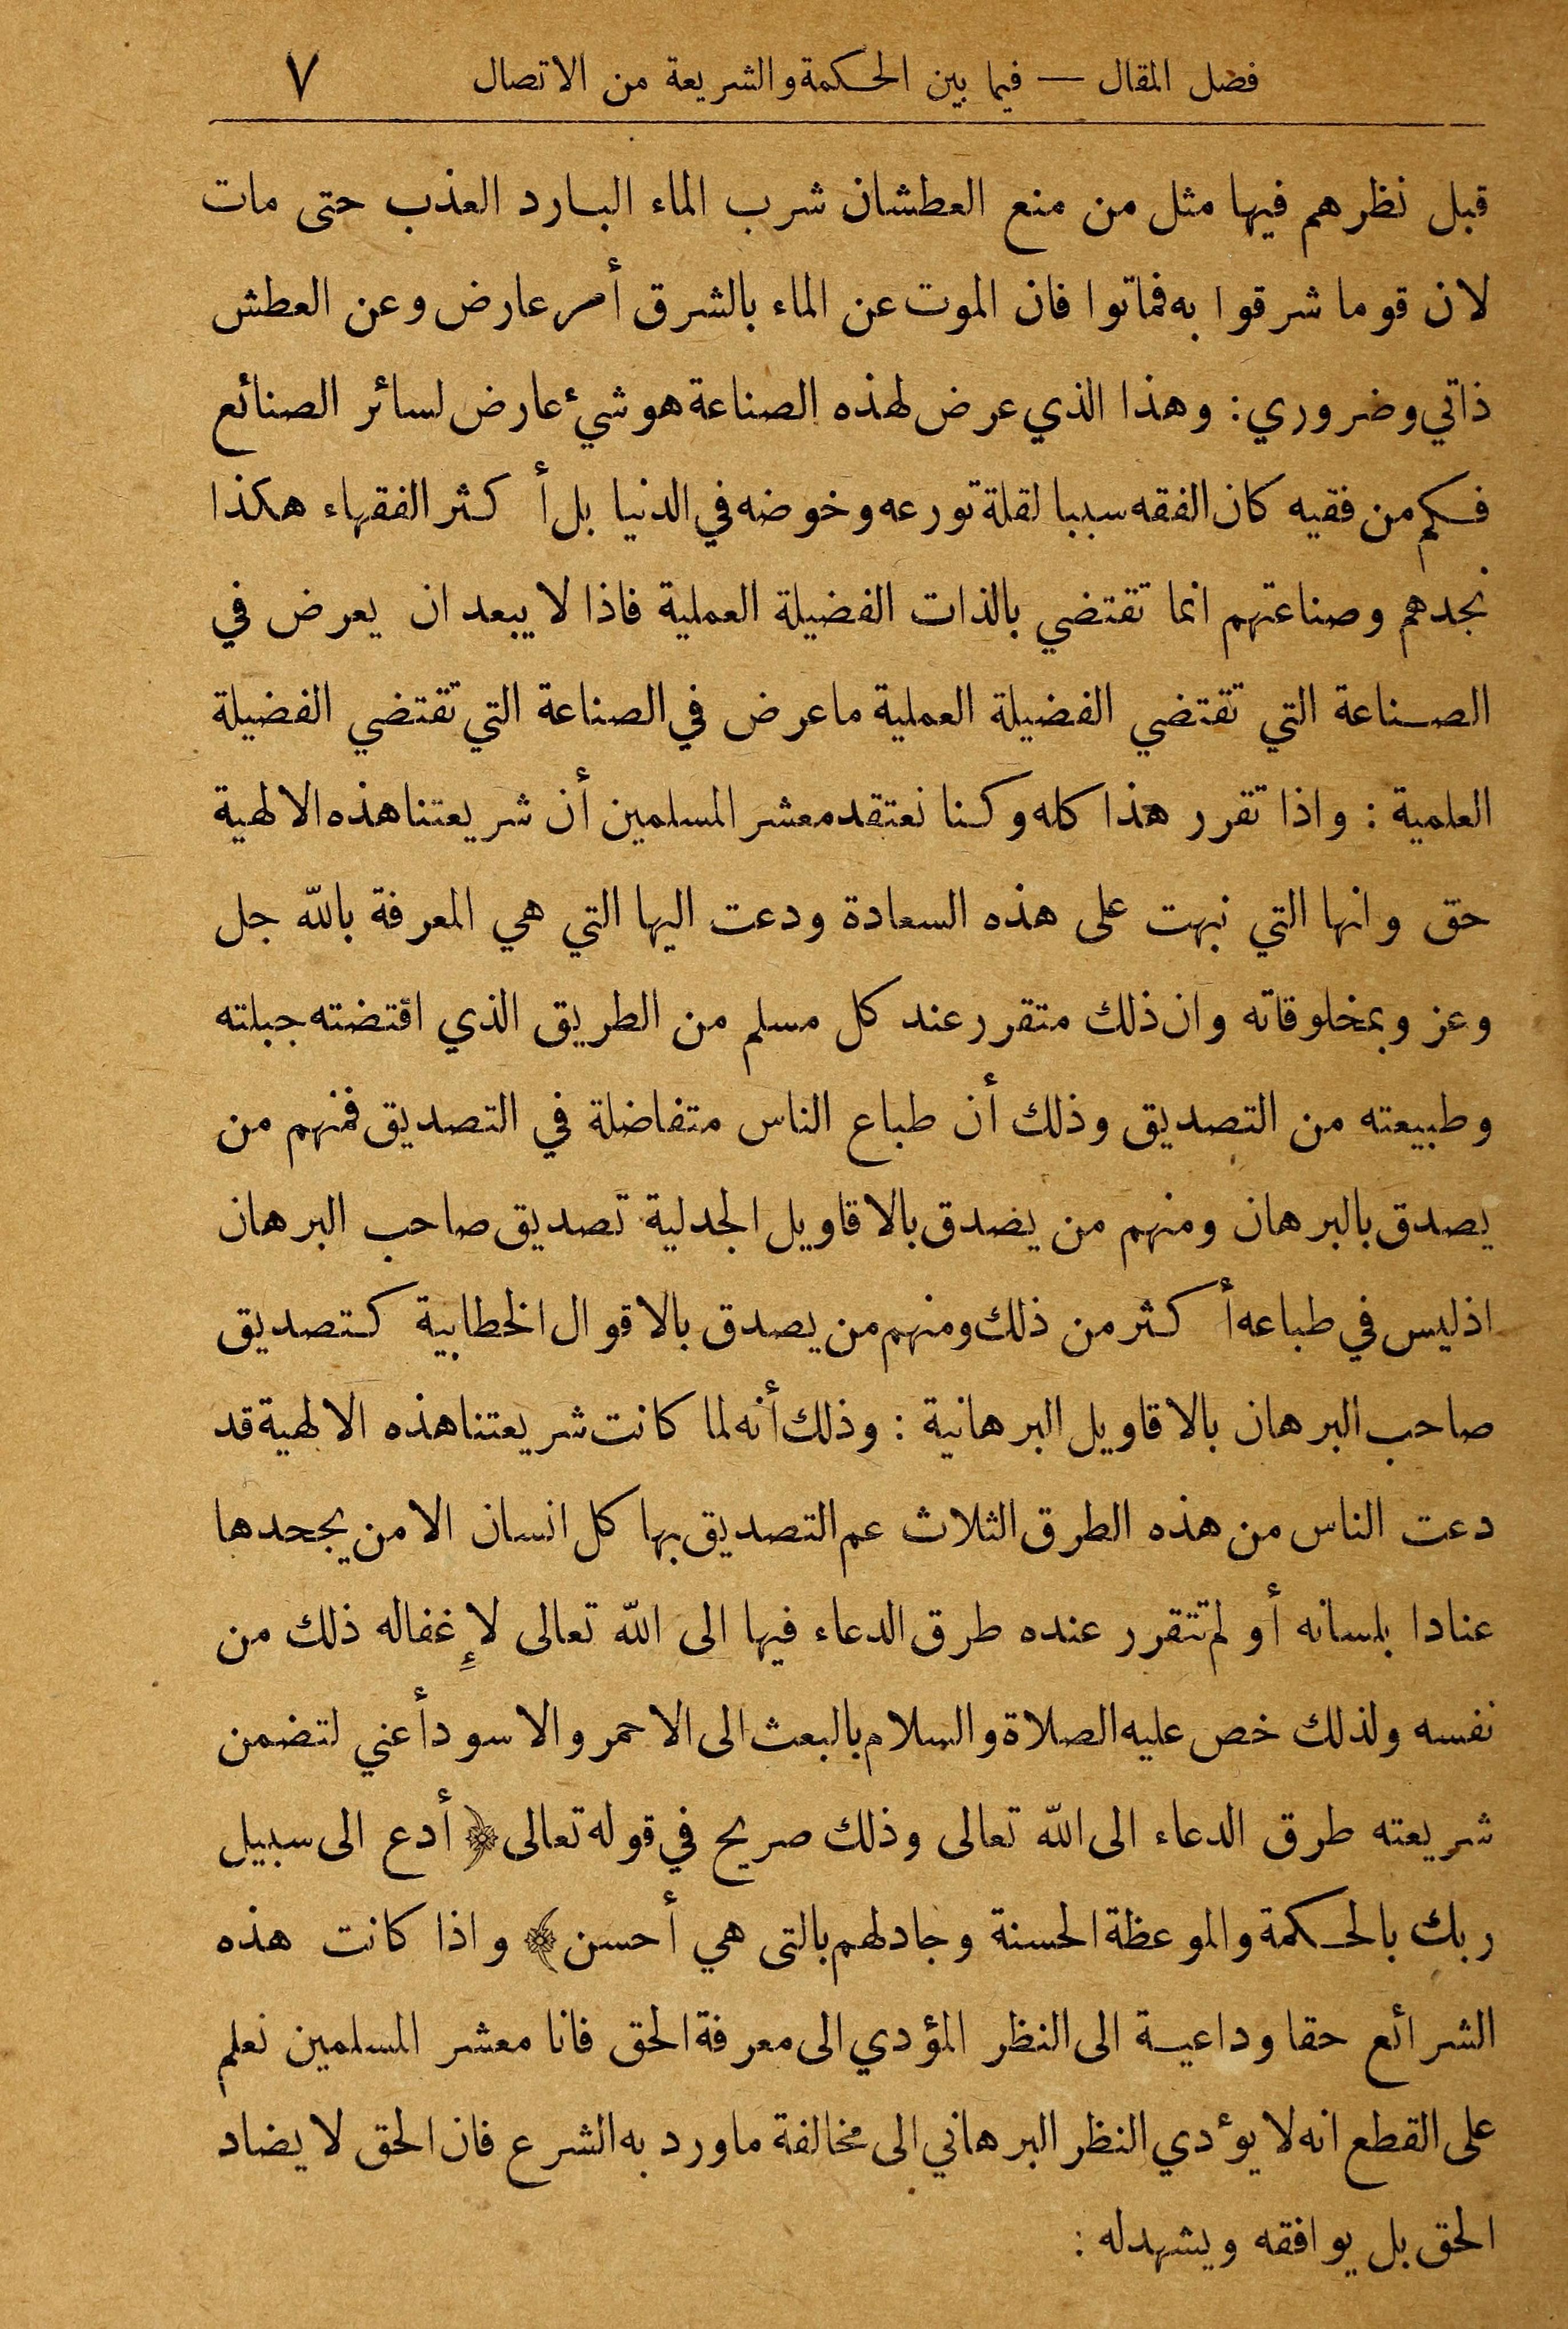 فضل المقال — فيما بين الحكمة والشريعة من الاتصال ٧
قبل نظرهم فيها مثل من منع العطشان شرب الماء البارد العذب حتى مات
لان قوما شرقوا به فماتوا فان الموت عن الماء بالشرق أمر عارض وعن العطش
ذاتي وضروري : وهذا الذي عرض لهذه الصناعة هو شيء عارض لسائر الصنائع
فكم من فقيه كان الفقه سببا لقلة تورعه وخوضه في الدنيا بل أكثر الفقهاء هكذا
نجدهم وصناعتهم انما تقتضي بالذات الفضيلة العملية فاذا لا يبعد ان يعرض في
الصناعة التي تقتضي الفضيلة العملية ما عرض في الصناعة التي تقتضي الفضيلة
العلمية : واذا تقرر هذا كله وكنا نعتقد معشر المسلمين أن شريعتنا هذه الالهية
حق وانها التي نبهت على هذه السعادة ودعت اليها التي هي المعرفة بالله جل
وعز وبمخلوقاته وان ذلك متقرر عند كل مسلم من الطريق الذي اقتضته جبلته
وطبيعته من التصديق وذلك أن طباع الناس متفاضلة في التصديق فمنهم من
يصدق بالبرهان ومنهم من يضدق بالاقاويل الجدلية تصديق صاحب البرهان
اذ ليس في طباعه أكثر من ذلك ومنهم من يصدق بالاقوال الخطابية كتصديق
صاحب البرهان بالاقاويل البرهانية : وذلك أنه لما كانت شريعتنا هذه الالهية قد
دعت الناس من هذه الطرق الثلاث عم التصديق بها كل انسان الا من يجحدها
عنادا بلسانه أو لم تتقرر عنده طرق الدعاء فيها الى الله تعالى لإِغفاله ذلك من
نفسه ولذلك خص عليه الصلاة والسلام بالبعث الى الاحمر والاسود أعني لتضمن
شريعته طرق الدعاء الى الله تعالى وذلك صريح في قوله تعالى ﴿ أدع الى سبيل
ربك بالحكمة والموعظة الحسنة وجادلهم بالتى هي أحسن ﴾ واذا كانت هذه
الشرائع حقا وداعية الى النظر المؤدي الى معرفة الحق فانا معشر المسلمين نعلم
على القطع انه لا يؤدي النظر البرهاني الى مخالفة ما ورد به الشرع فان الحق لا يضاد
الحق بل يوافقه ويشهد له :